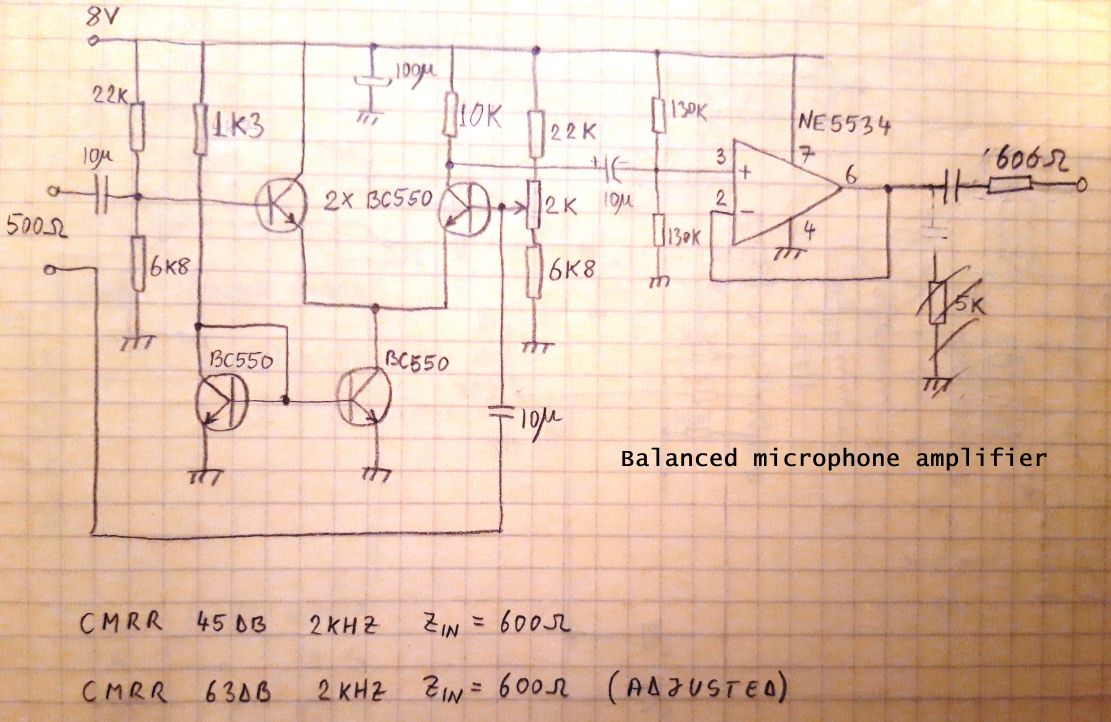 8V
22K
1K3
100µ
10K
22K
130K
NE5534
10µ
+
-
10µ
3
+
7
2
-
6
4
600Ω
500Ω
2x BC550
2K
130K
6K8
6K8
5K
BC550
BC550
10µ
Balanced microphone amplifier
CMRR 45ΔB 2KHZ ZIN = 600Ω
CMRR 63ΔB 2KHZ ZIN = 600Ω (AΔJUSTEΔ)